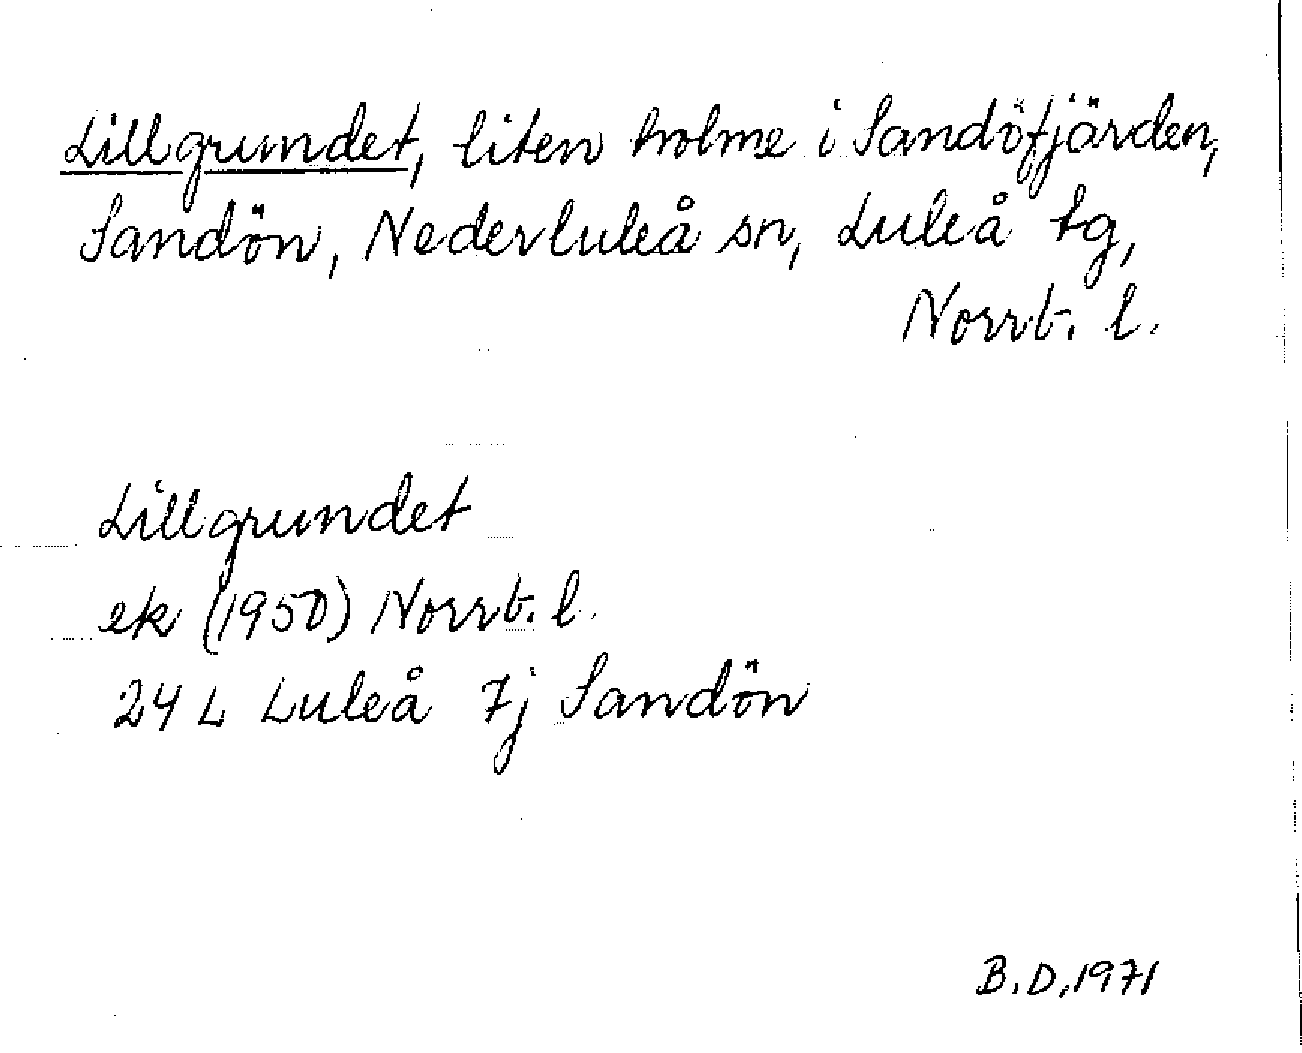 Lillgrundet, liten holme i Sandöfjärden,
Sandön, Nederluleå sn, Luleå tg,
Norrb. l.
Lillgrundet
ek (1950) Norrb. l.
24 L Luleå 7j Sandön
B.D, 1971